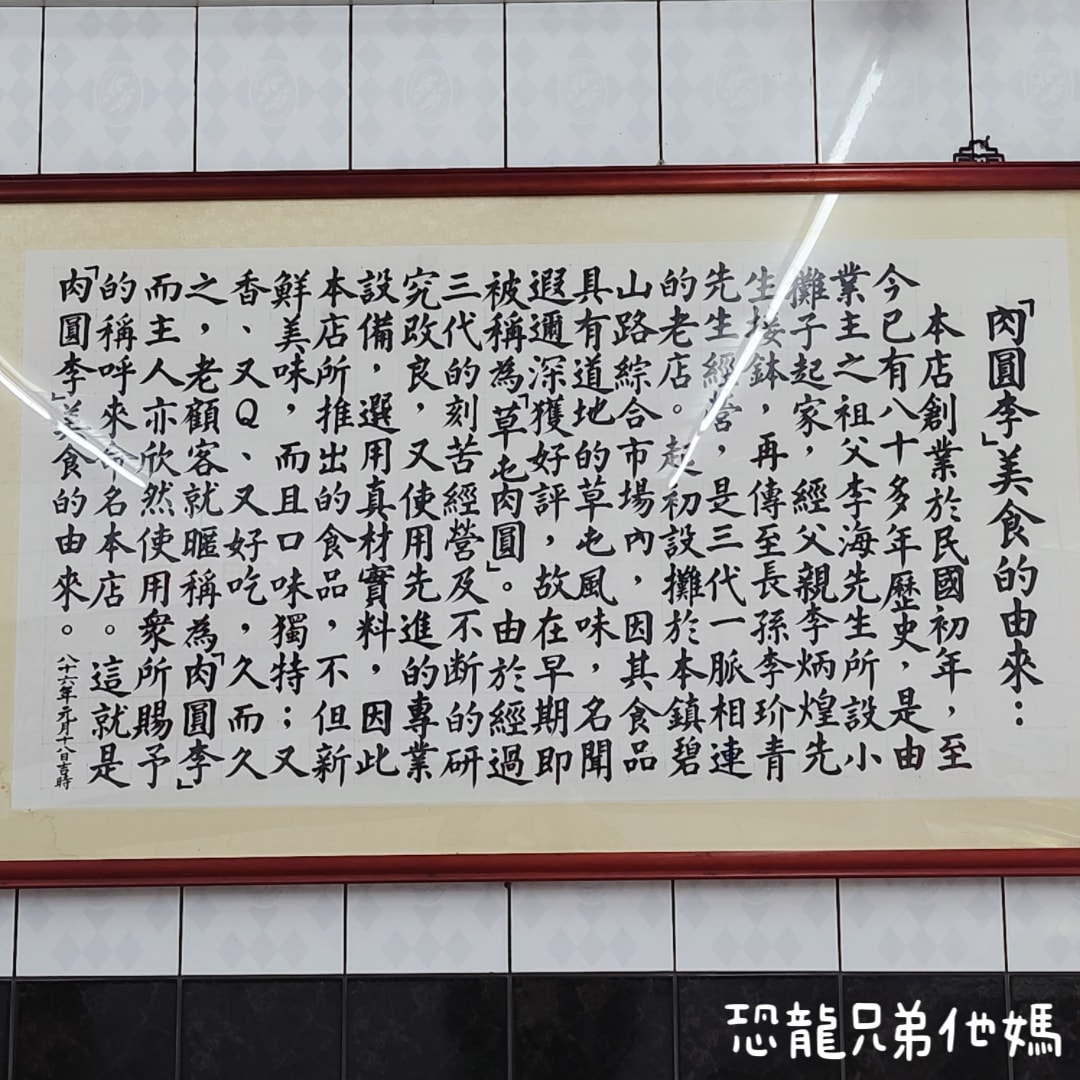 「肉圓李」美食的由來：
本店創業於民國初年，至
今已有八十多年歷史，是由
業主之祖父李海先生所設小
攤子起家，經父親李炳煌先
生接鉢，再傳至長孫李玠青
先生經營，是三代一脈相連
的老店。起初設攤於本鎮碧
山路綜合市場內，因其食品
具有道地的草屯風味，名聞
遐邇深獲好評，故在早期即
被稱為「草屯肉圓」。由於經過
三代的刻苦經營及不斷的研
究改良，又使用先進的專業
設備，選用真材實料，因此
本店所推出的食品，不但新
鮮美味，而且口味獨特；又
香、又Q、又好吃，久而久
之，老顧客就暱稱為「肉圓李」
而主人亦欣然使用衆所賜予
的稱呼來命名本店。這就是
「肉圓李」美食的由來。
八十六年元月十八日吉時
恐龍兄弟他媽